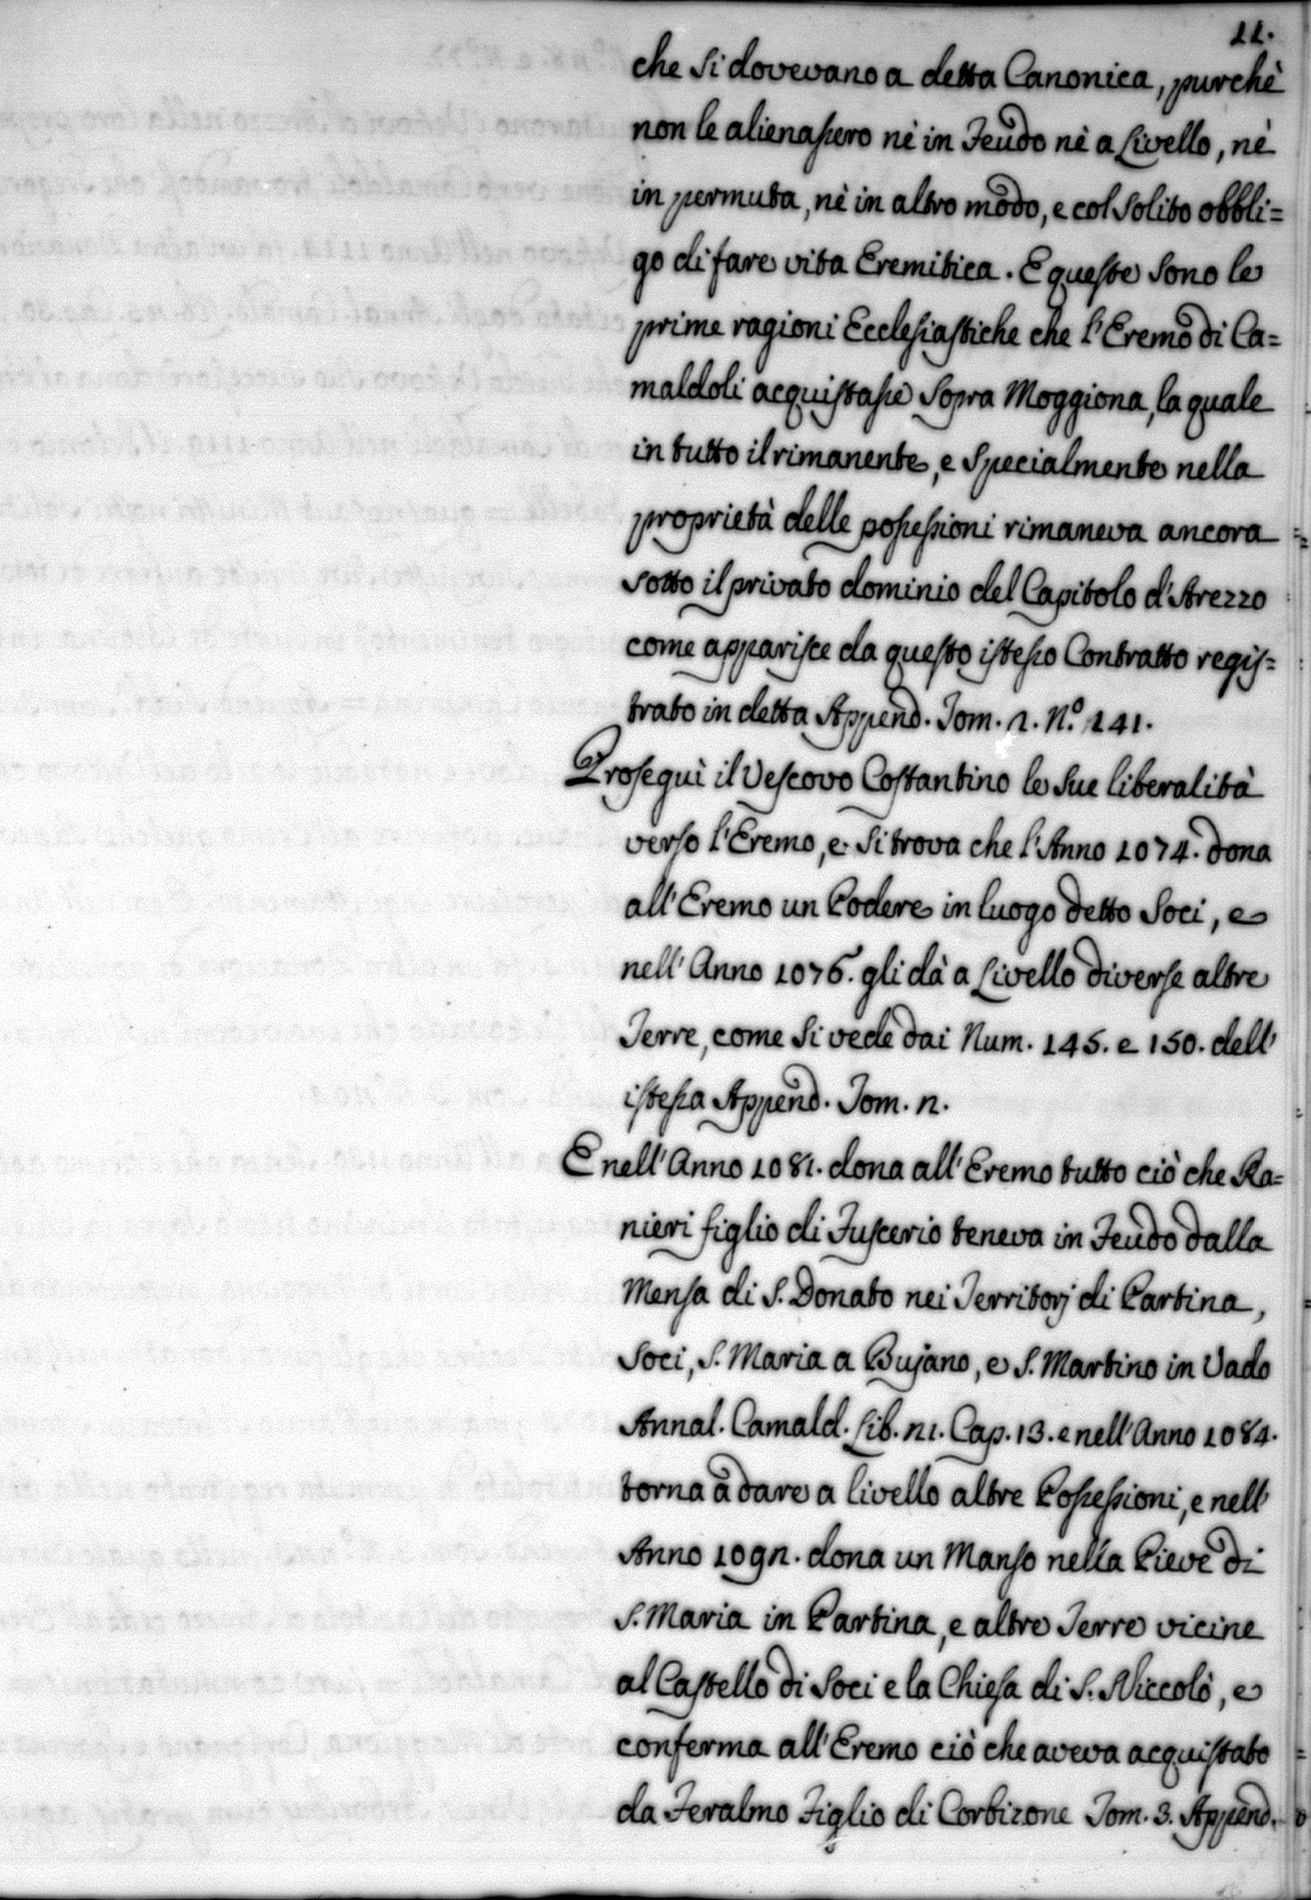 11.
che si dovevano a detta Canonica, purchè
non le alienassero nè in Feudo nè a Livello, nè
in permuta, nè in altro modo, e col solito obbli=
go di fare vita Eremitica. E queste sono le
prime ragioni Ecclesiastiche che l'Eremo di Ca=
maldoli acquistasse sopra Moggiona, la quale
in tutto il rimanente, e specialmente nella
proprietà delle possessioni rimaneva ancora
sotto il privato dominio del Capitolo d'Arezzo
come apparisce da questo istesso Contratto regis=
trato in detta Append. Tom. 2. N.º 141.
Proseguì il Vescovo Costantino le sue liberalità
verso l'Eremo, e si trova che l'Anno 1074. dona
all'Eremo un Podere in luogo detto Soci, e
nell'Anno 1076. gli dà a Livello diverse altre
Terre, come si vede dai Num. 145. e 150. dell'
istessa Append. Tom. 2.
E nell'Anno 1081. dona all'Eremo tutto ciò che Ra=
nieri figlio di Fuscerio teneva in Feudo dalla
Mensa di S. Donato nei Territorj di Partina,
Soci, S. Maria a Bujano, e S. Martino in Vado
Annal. Camald. Lib. 21. Cap. 13. e nell'Anno 1084.
torna a dare a livello altre Possessioni, e nell'
Anno 1092. dona un Manso nella Pieve di
S. Maria in Partina, e altre Terre vicine
al Castello di Soci e la Chiesa di S. Niccolò, e
conferma all'Eremo ciò che aveva acquistato
da Feralmo Figlio di Corbizone Tom. 3. Append.